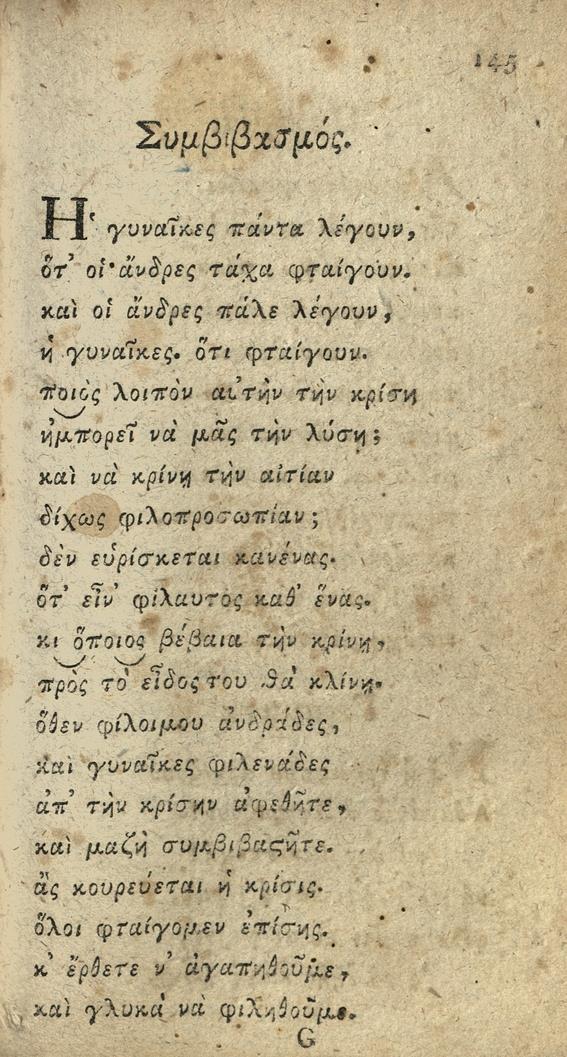 145
Συμβιβασμός.
Ἡ γυναῖκες πάντα λέγουν,
ὅτ' οἱ ἄνδρες τάχα φταίγουν.
καὶ οἱ ἄνδρες πάλε λέγουν,
ἡ γυναῖκες. ὅτι φταίγουν.
ποιὸς λοιπὸν αὐτὴν τὴν κρίση
ἠμπορεῖ νὰ μᾶς τὴν λύση;
καὶ νὰ κρίνῃ τὴν αἰτίαν
δίχως φιλοπροσωπίαν;
δὲν εὑρίσκεται κανένας.
ὅτ' εἶν' φίλαυτος καθ' ἕνας.
κι ὅποιος βέβαια τὴν κρίνῃ,
πρὸς τὸ εἶδος του θὰ κλίνῃ.
ὅθεν φίλοιμου ἀνδράδες,
καὶ γυναῖκες φιλενάδες
ἀπ' τὴν κρίσην ἀφεθῆτε,
καὶ μαζὴ συμβιβαϛῆτε.
ἂς κουρεύεται ἡ κρίσις.
ὅλοι φταίγομεν ἐπίσης.
κ' ἔρθετε ν' ἀγαπηθοῦμε,
καὶ γλυκὰ νὰ φιληθοῦμε.
G